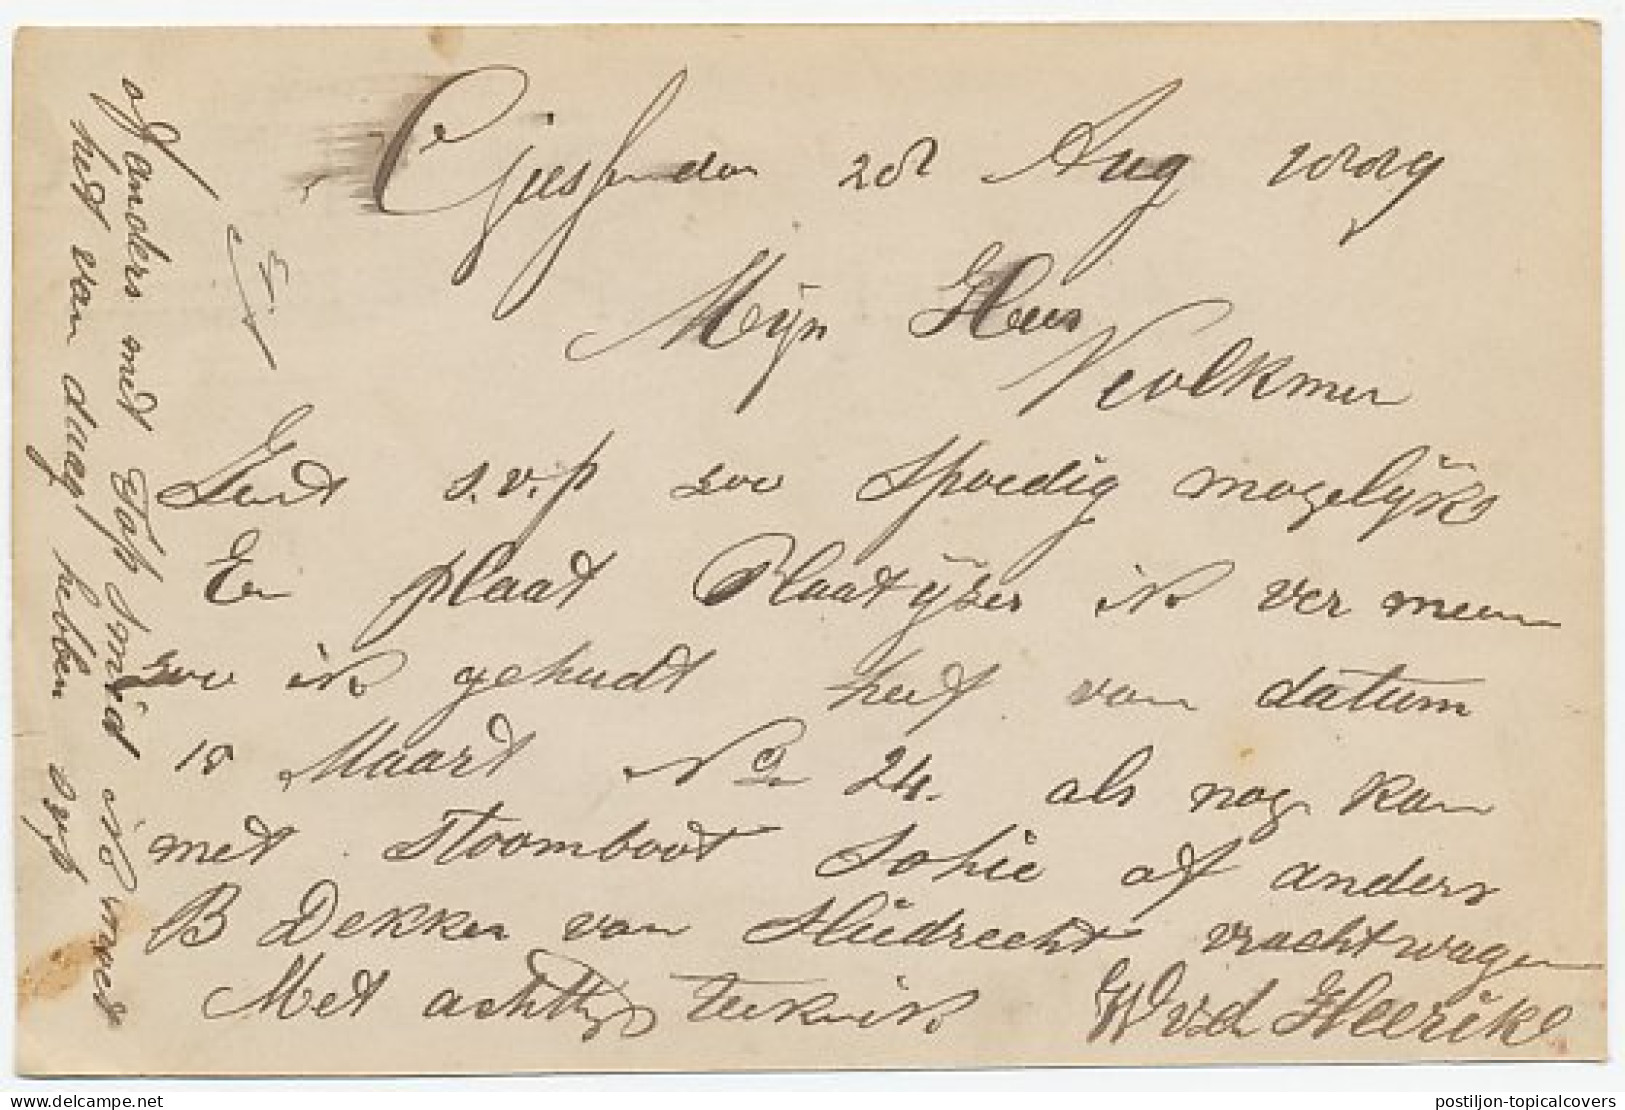 Giessendam 28 Aug
Mijn Heer
Volkmer
s.v.p zoo spoedig mogelijk
En plaat Plaatijzer ik ver meen
zoo ik gehadt heef van datum
18 Maart No 24. als nog kan
met stoomboot Sophie of anders
B Dekker van Sliedrecht vrachtwagen
Met achting teeken ik W vd Heerik
of anders met Smid ik moet
het van daag hebben svp
postiljon-topicalcovers